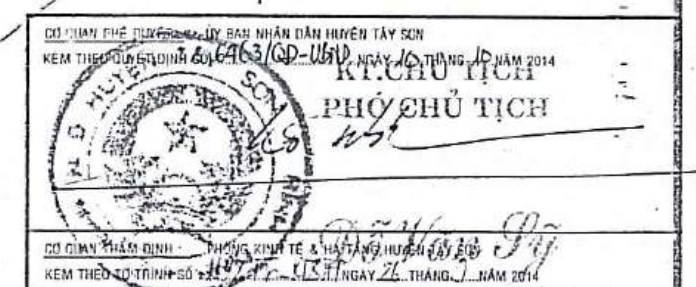 CƠ QUAN PHÊ DUYỆT : ỦY BAN NHÂN DÂN HUYỆN TÂY SƠN
KÈM THEO QUYẾT ĐỊNH SỐ 6963/QĐ-UBND NGÀY 16 THÁNG 10 NĂM 2014
KT.CHỦ TỊCH
PHÓ CHỦ TỊCH
HUYỆN SƠN
CƠ QUAN THẨM ĐỊNH : PHÒNG KINH TẾ & HẠ TẦNG HUYỆN TÂY SƠN
KÈM THEO TỜ TRÌNH SỐ NGÀY 26 THÁNG 9 NĂM 2014